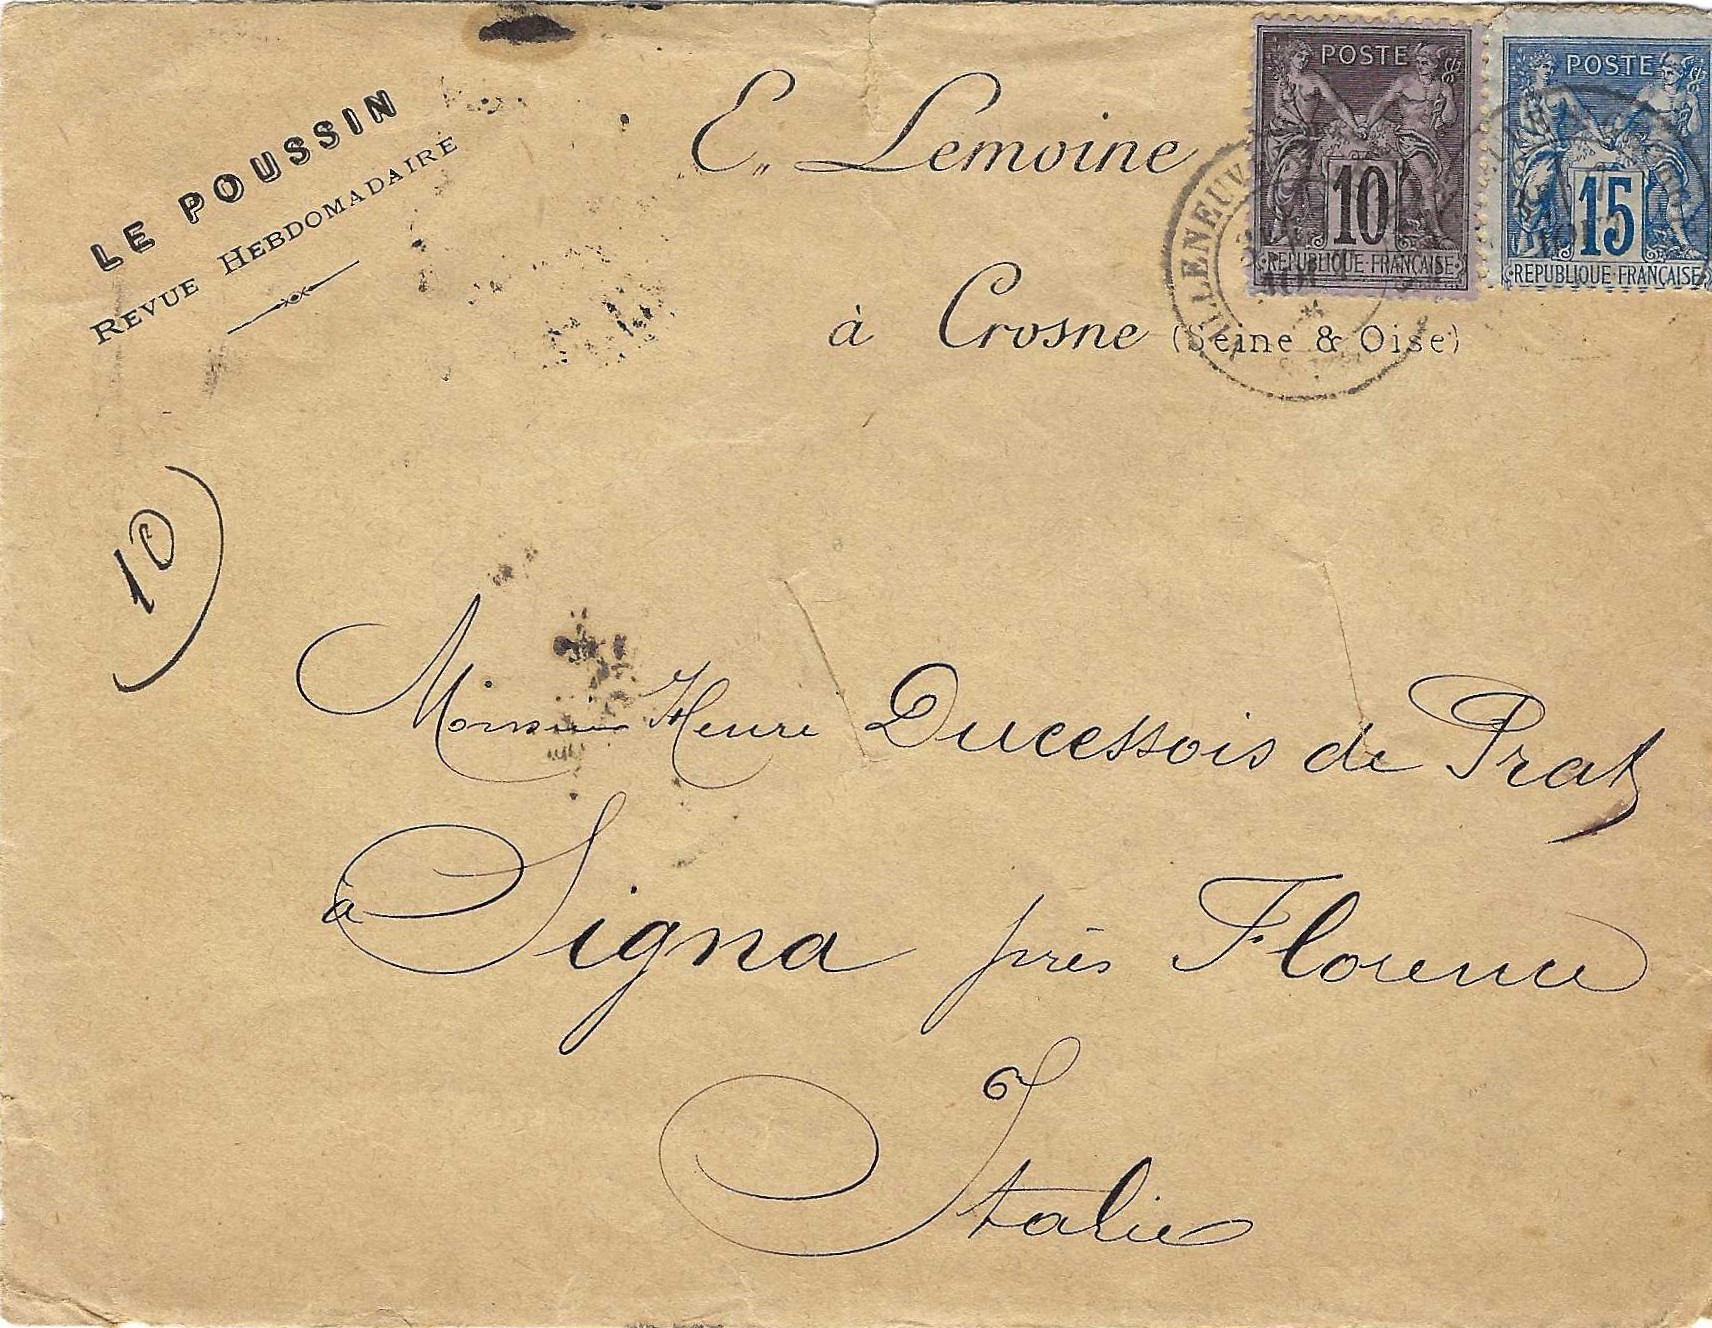 LE POUSSIN
REVUE HEBDOMADAIRE
E. Lemoine
à Crosne (Seine & Oise)
POSTE
10
REPUBLIQUE FRANÇAISE
POSTE
15
REPUBLIQUE FRANÇAISE
VILLENEUV
10)
Monsieur Henri Ducessois de Prat
à Signa près Florence
Italie